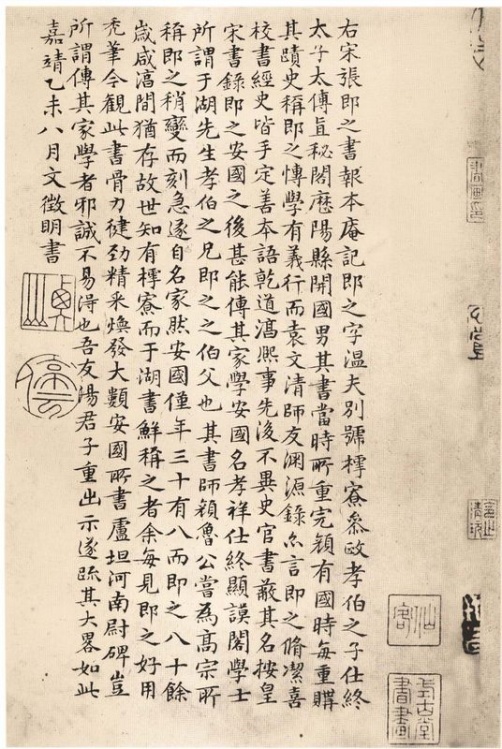 右宋張即之書報本庵記即之字溫夫別號樗寮參政孝伯之子仕終
太子太傅直秘閣歷陽縣開國男其書當時所重完顏有國時每重購
其蹟史稱即之博學有義行而袁文清師友淵源錄亦言即之脩潔喜
校書經史皆手定善本語乾道淳熙事先後不異史官書蔽其名按皇
宋書錄即之安國之後甚能傳其家學安國名孝祥仕終顯謨閣學士
所謂于湖先生孝伯之兄即之之伯父也其書師顏魯公嘗為高宗所
稱即之稍變而刻急遂自名家然安國僅年三十有八而即之八十餘
歲咸淳間猶存故世知有樗寮而于湖書鮮稱之者余每見即之好用
禿筆今觀此書骨力健勁精采煥發大類安國所書盧坦河南尉碑豈
所謂傳其家學者邪誠不易得也吾友湯君子重出示遂疏其大畧如此
嘉靖乙未八月文徵明書